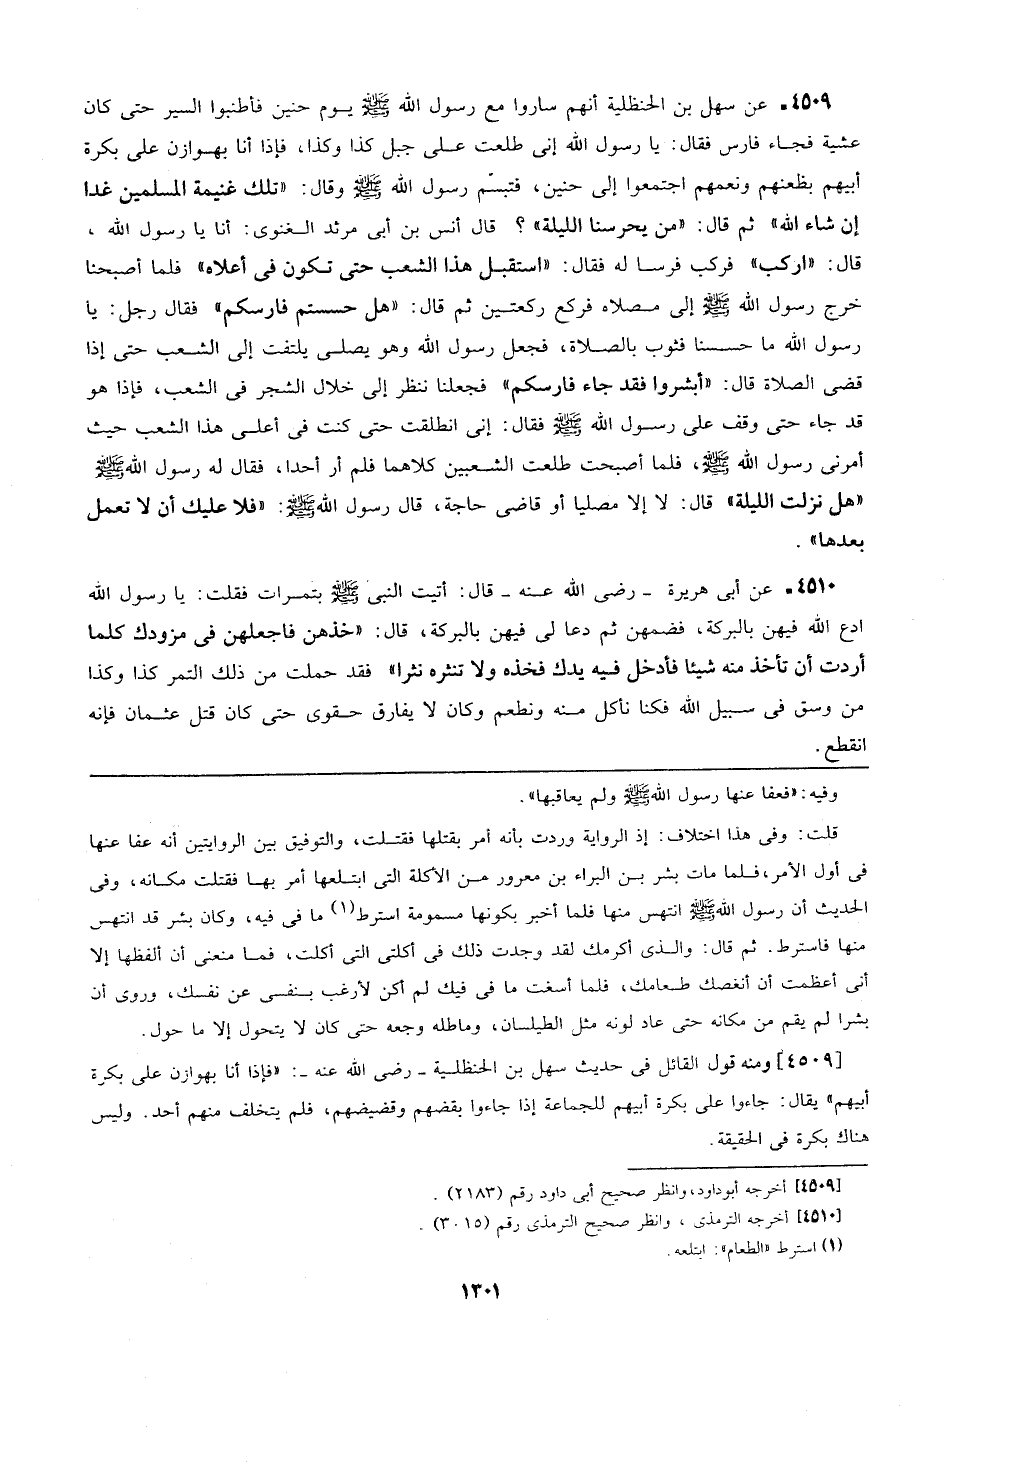 ٤٥٠٩. عن سهل بن الحنظلية أنهم ساروا مع رسول الله ﷺ يـوم حنين فأطنبوا السير حتى كان
عشية فجـاء فارس فقال: يا رسول الله إنى طلعت علـى جبل كذا وكذا، فإذا أنا بهـوازن على بكرة
أبيهم بظعنهم ونعمهم اجتمعوا إلى حنين، فتبسّم رسول الله ﷺ وقال: «تلك غنيمة المسلمين غدا
إن شاء الله» ثم قال: «من يحرسنا الليلة» ؟ قال أنس بن أبى مرثد الـغنوى: أنا يا رسول الله ،
قال: «اركب» فركب فرسا له فقال: «استقبل هذا الشعب حتى تكون فى أعلاه» فلما أصبحنا
خرج رسول الله ﷺ إلى مـصلاه فركع ركعتـين ثم قال: «هل حسستم فارسكم» فقال رجل: يا
رسول الله ما حسـسنا فثوب بالصـلاة، فجعل رسول الله وهو يصلـى يلتفت إلى الشـعب حتى إذا
قضى الصلاة قال: «أبشروا فقد جاء فارسكم» فجعلنا ننظر إلى خلال الشجر فى الشعب، فإذا هو
قد جاء حتى وقف على رسـول الله ﷺ فقال: إنى انطلقت حتى كنت فى أعلـى هذا الشعب حيث
أمرنى رسول الله ﷺ، فلما أصبحت طلعت الشـعبين كلاهما فلم أر أحدا، فقال له رسول الله ﷺ
«هل نزلت الليلة» قال: لا إلا مصليا أو قاضى حاجة، قال رسول الله ﷺ: «فلا عليك أن لا تعمل
بعدها» .
٤٥١٠. عن أبى هريرة ـ رضى الله عـنه ـ قال: أتيت النبى ﷺ بتمـرات فقلت: يا رسول الله
ادع الله فيهن بالبركة، فضمهن ثم دعا لى فيهن بالبركة، قال: «خذهن فاجعلهن فى مزودك كلما
أردت أن تأخذ منه شيئا فأدخل فـيه يدك فخذه ولا تنثره نثرا» فقد حملت من ذلك التمر كذا وكذا
من وسق فى سـبيل الله فكنا نأكل مـنه ونطعم وكان لا يفارق حـقوى حتى كان قتل عثـمان فإنه
انقطع .
وفيه: «فعفا عنها رسول الله ﷺ ولم يعاقبها».
قلت: وفى هذا اختلاف: إذ الرواية وردت بأنه أمر بقتلها فقتـلت، والتوفيق بين الروايتين أنه عفا عنها
فى أول الأمر، فـلما مات بشر بـن البراء بن معرور مـن الأكلة التى ابتـلعها أمر بهـا فقتلت مكـانه، وفى
الحديث أن رسول الله ﷺ انتهس منها فلما أخبر بكونها مسمومة استرط(١) ما فى فيه، وكان بشر قد انتهس
منها فاسترط. ثم قال: والـذى أكرمك لقد وجدت ذلك فى أكلتى التى أكلت، فمـا منعنى أن ألفظها إلا
أنى أعظمت أن أنغصك طـعامك، فلما أسغت ما فى فيك لم أكن لأرغب بـنفسـى عن نفسـك، وروى أن
بشرا لم يقم من مكانه حتى عاد لونه مثل الطيلسان، وماطله وجعه حتى كان لا يتحول إلا ما حول.
[٤٥٠٩] ومنه قول القائل فى حديث سهل بن الحنظلـية ـ رضى الله عنه ـ: «فإذا أنا بهوازن على بكرة
أبيهم» يقال: جاءوا على بكرة أبيهم للجماعة إذا جاءوا بقضهم وقضيضهم، فلم يتخلف منهم أحد. وليس
هناك بكرة فى الحقيقة.
[٤٥٠٩] أخرجه أبوداود، وانظر صحيح أبى داود رقم (٢١٨٣) .
[٤٥١٠] أخرجه الترمذى ، وانظر صحيح الترمذى رقم (٣٠١٥) .
(١) استرط «الطعام»: ابتلعه.
١٣٠١